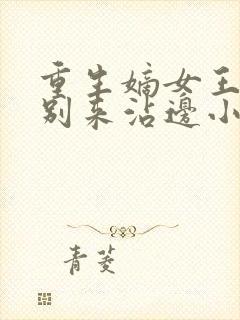 重生嫡女王
别来沾邊小
青菱